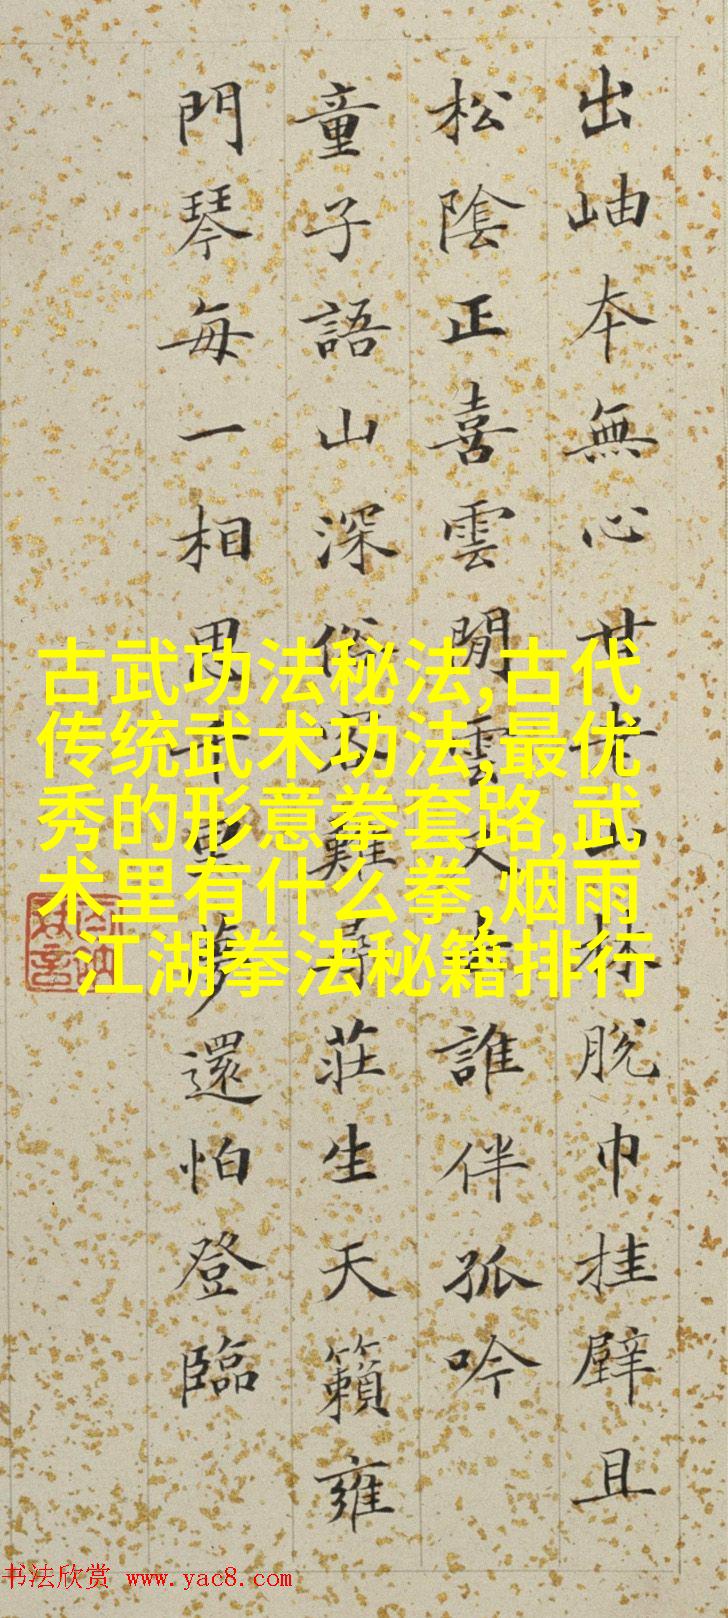 出岫本無心甘老山林脫巾挂壁且
松陰正喜雲閒雲又去誰伴孤吟
童子語山深俗難尋莊生天籟雍
門琴每一相思千里夢還怕登臨
古武功法秘法,古代
传统武术功法,最优
秀的形意拳套路,武
术里有什么拳,烟雨
江湖拳法秘籍排行
书法欣赏 www.yac8.com